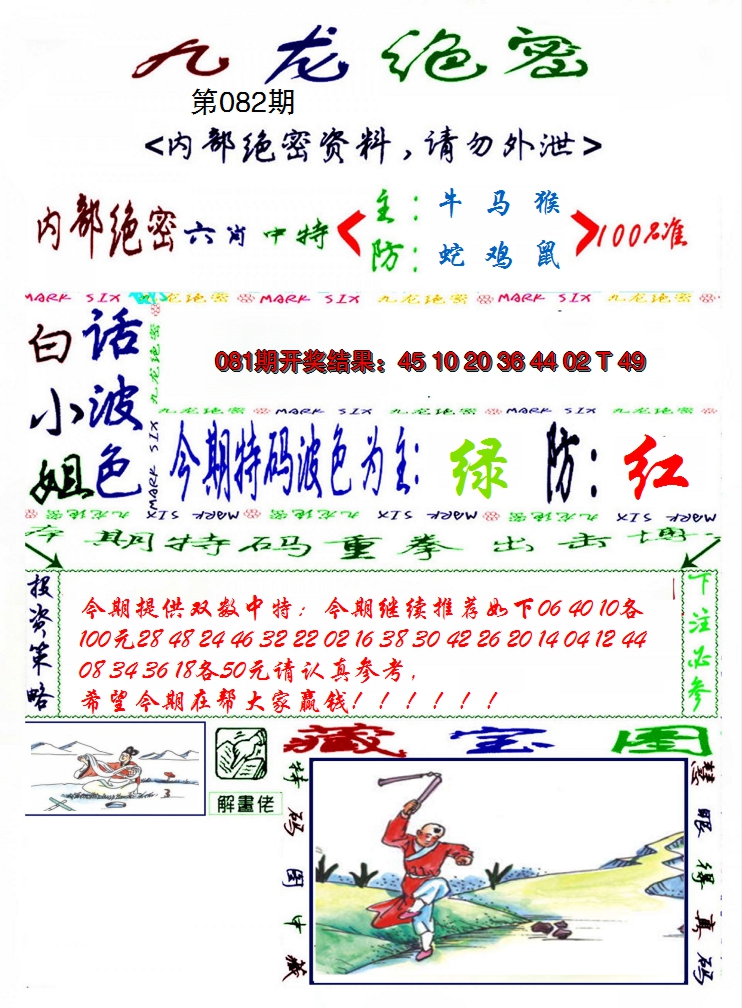 九龙绝密
第082期
<内部绝密资料，请勿外泄>
内部绝密六肖中特
主：牛 马 猴
防：蛇 鸡 鼠
100%准
MARK SIX 九龙绝密 MARK SIX 九龙绝密 MARK SIX 九龙绝密
白小姐
话波色
九龙绝密
MARK SIX
081期开奖结果：45 10 20 36 44 02 T 49
九龙绝密 MARK SIX 九龙绝密 MARK SIX 九龙绝密
今期特码波色为主：绿 防：红
MARK SIX 九龙绝密 MARK SIX 九龙绝密 MARK SIX 九龙绝密
期特码重拳出击
投资策略
今期提供双数中特；今期继续推荐如下06 40 10各
100元28 48 24 46 32 22 02 16 38 30 42 26 20 14 04 12 44
08 34 36 18各50元请认真参考，
希望今期在帮大家赢钱！！！！！！
下注必参
藏宝图
解畫佬
特码图中藏
慧眼得真码